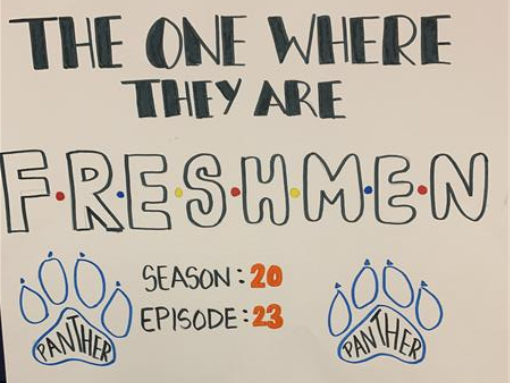 THE ONE WHERE
THEY ARE
F•R•E•S•H•M•E•N
SEASON: 20
EPISODE: 23
PANTHER
PANTHER